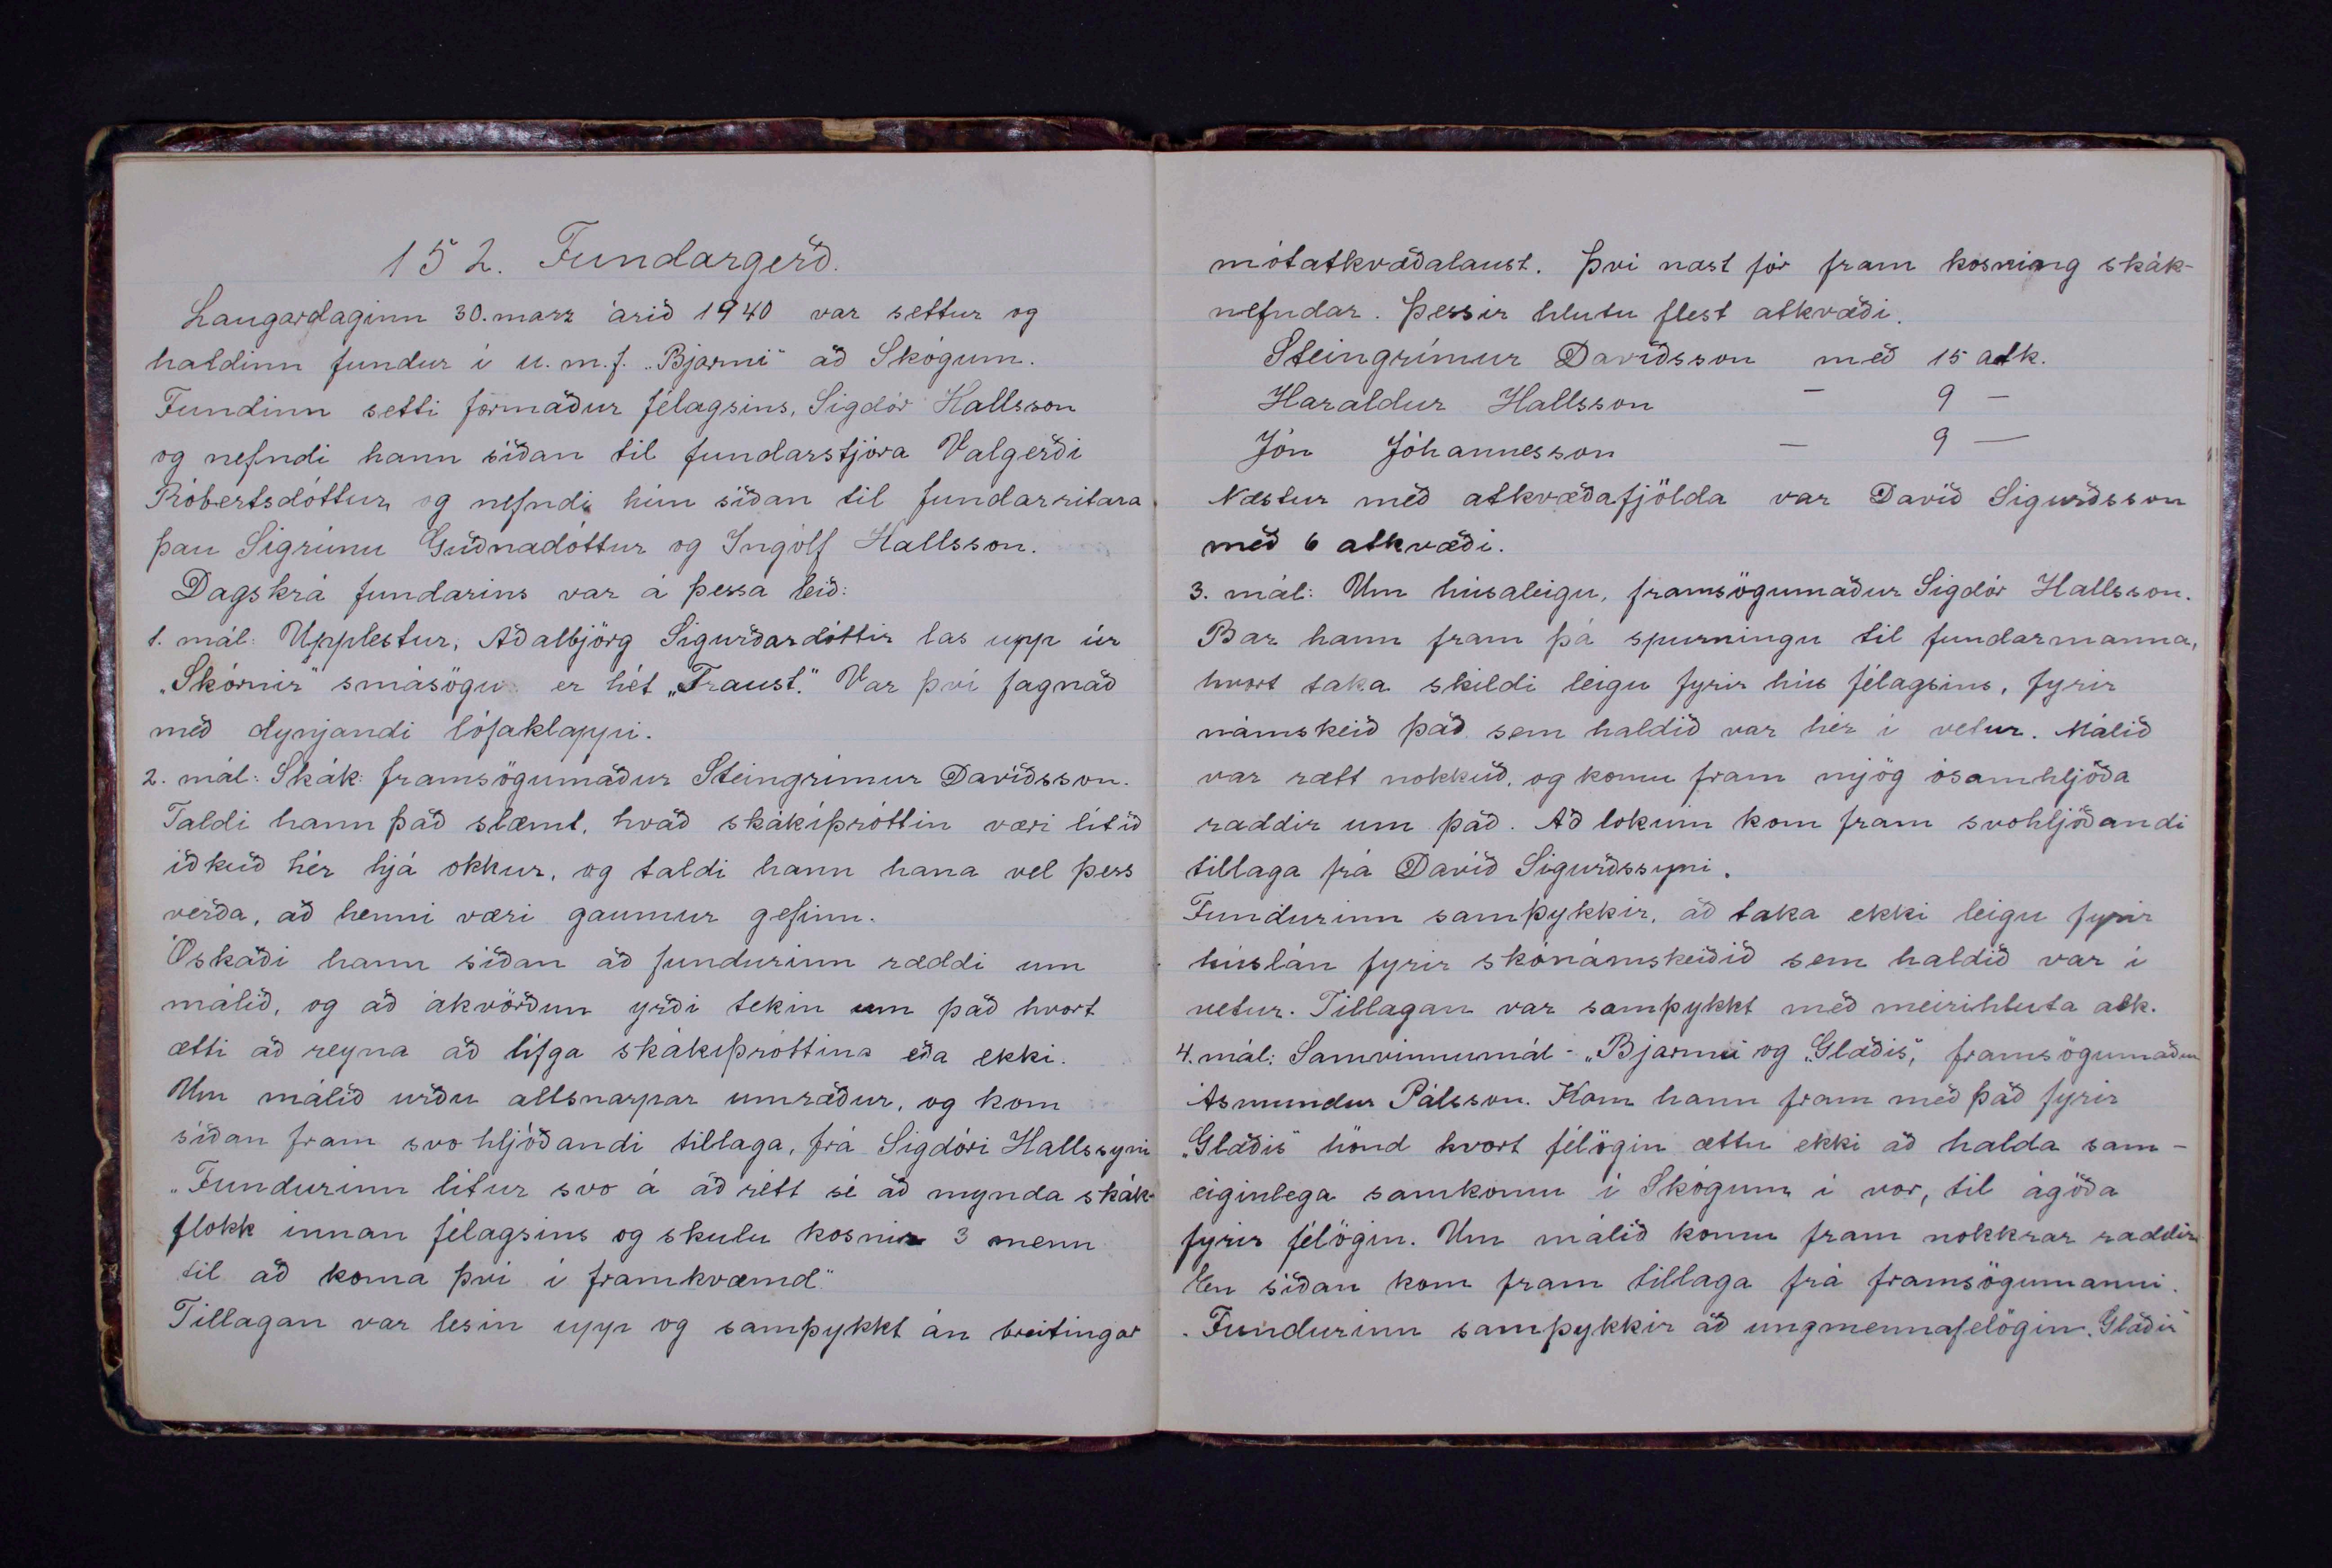 152. Fundargerð.
Laugardaginn 30. marz árið 1940 var settur og
haldinn fundur í u.m.f. „Bjarmi" að Skógum.
Fundinn setti formaður félagsins, Sigdór Hallsson
og nefndi hann síðan til fundarstjóra Valgerði
Róbertsdóttur, og nefndi hún síðan til fundarritara
þau Sigrúnu Guðnadóttur og Ingólf Hallsson.
Dagskrá fundarins var á þessa leið:
1. mál: Upplestur, Aðalbjörg Sigurðardóttir las upp úr
„Skórnir" smásögu er hét „Traust." Var því fagnað
með dynjandi lófaklappi.
2. mál: Skák: framsögumaður Steingrímur Davíðsson.
Taldi hann það slæmt, hvað skákíþróttin væri lítið
iðkuð hér hjá okkur, og taldi hann hana vel þess
verða, að henni væri gaumur gefinn.
Óskaði hann síðan að fundurinn ræddi um
málið, og að ákvörðun yrði tekin um það hvort
ætti að reyna að lífga skákíþróttina eða ekki.
Um málið urðu allsnarpar umræður, og kom
síðan fram svo hljóðandi tillaga, frá Sigdóri Hallssyni
„Fundurinn lítur svo á að rétt sé að mynda skák-
flokk innan félagsins og skulu kosnir 3 menn
til að koma því í framkvæmd"
Tillagan var lesin upp og samþykkt án breitingar
mótatkvæðalaust. Því næst fór fram kosning skák-
nefndar. Þessir hlutu flest atkvæði.
Steingrímur Davíðsson með 15 atk.
Haraldur Hallsson — 9 —
Jón Jóhannesson — 9 —
Næstur með atkvæðafjölda var Davíð Sigurðsson
með 6 atkvæði.
3. mál: Um húsaleigu, framsögumaður Sigdór Hallsson.
Bar hann fram þá spurningu til fundarmanna,
hvort taka skildi leigu fyrir hús félagsins, fyrir
námskeið það sem haldið var hér í vetur. Málið
var rætt nokkuð, og komu fram mjög ósamhljóða
raddir um það. Að lokum kom fram svohljóðandi
tillaga frá Davíð Sigurðssyni.
Fundurinn samþykkir, að taka ekki leigu fyrir
húslán fyrir skónámskeiðið sem haldið var í
vetur. Tillagan var samþykkt með meirihluta atk.
4. mál: Samvinnumál - „Bjarmi og „Glæðis", framsögumaður
Ásmundur Pálsson. Kom hann fram með það fyrir
„Glæðis" hönd hvort félögin ættu ekki að halda sam-
eiginlega samkomu í Skógum í vor, til ágóða
fyrir félögin. Um málið komu fram nokkrar raddir
En síðan kom fram tillaga frá framsögumanni.
„Fundurinn samþykkir að ungmennafelögin „Glæðir"